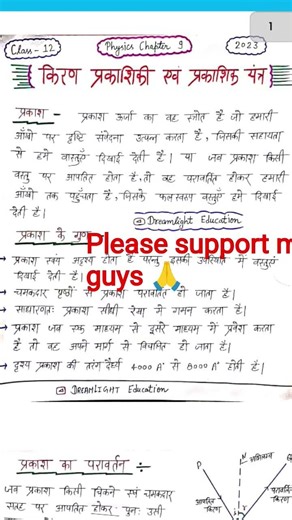 1
Class - 12
Physics Chapter 9
2023
किरण प्रकाशिकी एवं प्रकाशिक यंत्र
प्रकाश - प्रकाश ऊर्जा का वह स्त्रोत है जो हमारी
आँखो पर दृष्टि संवेदना उत्पन्न करता है, जिसकी सहायता
से हमें वस्तुएँ दिखाई देती है। या जब प्रकाश किसी
वस्तु पर आपतित होता है, तो वह परावर्तित होकर हमारी
आँखो तक पहुँचता है, जिसके फलस्वरूप वस्तुएँ हमें दिखाई
देती है।
@ Dreamlight Education
प्रकाश के गुण -
Please support m
guys 🙏
→ प्रकाश स्वयं अदृश्य होता है परन्तु इसकी उपस्थिति में वस्तुएं
दिखाई देती है।
→ चमकदार पृष्ठों से प्रकाश परावर्तित हो जाता है।
→ साधारणतः प्रकाश सीधी रेखा में गमन करता है।
→ प्रकाश जब एक माध्यम से दूसरे माध्यम में प्रवेश करता
है तो वह अपने मार्ग से विचलित हो जाता है।
→ दृश्य प्रकाश की तरंग दैर्ध्य 4000 A° से 8000 A° होती है।
@ DREAMLIGHT Education
प्रकाश का परावर्तन ÷
जब प्रकाश किसी चिकने एवं चमकदार
सतह पर आपतित होकर पुनः उसी
P
N
अभिलम्ब
आपतित
किरण
परावर्तित
किरण